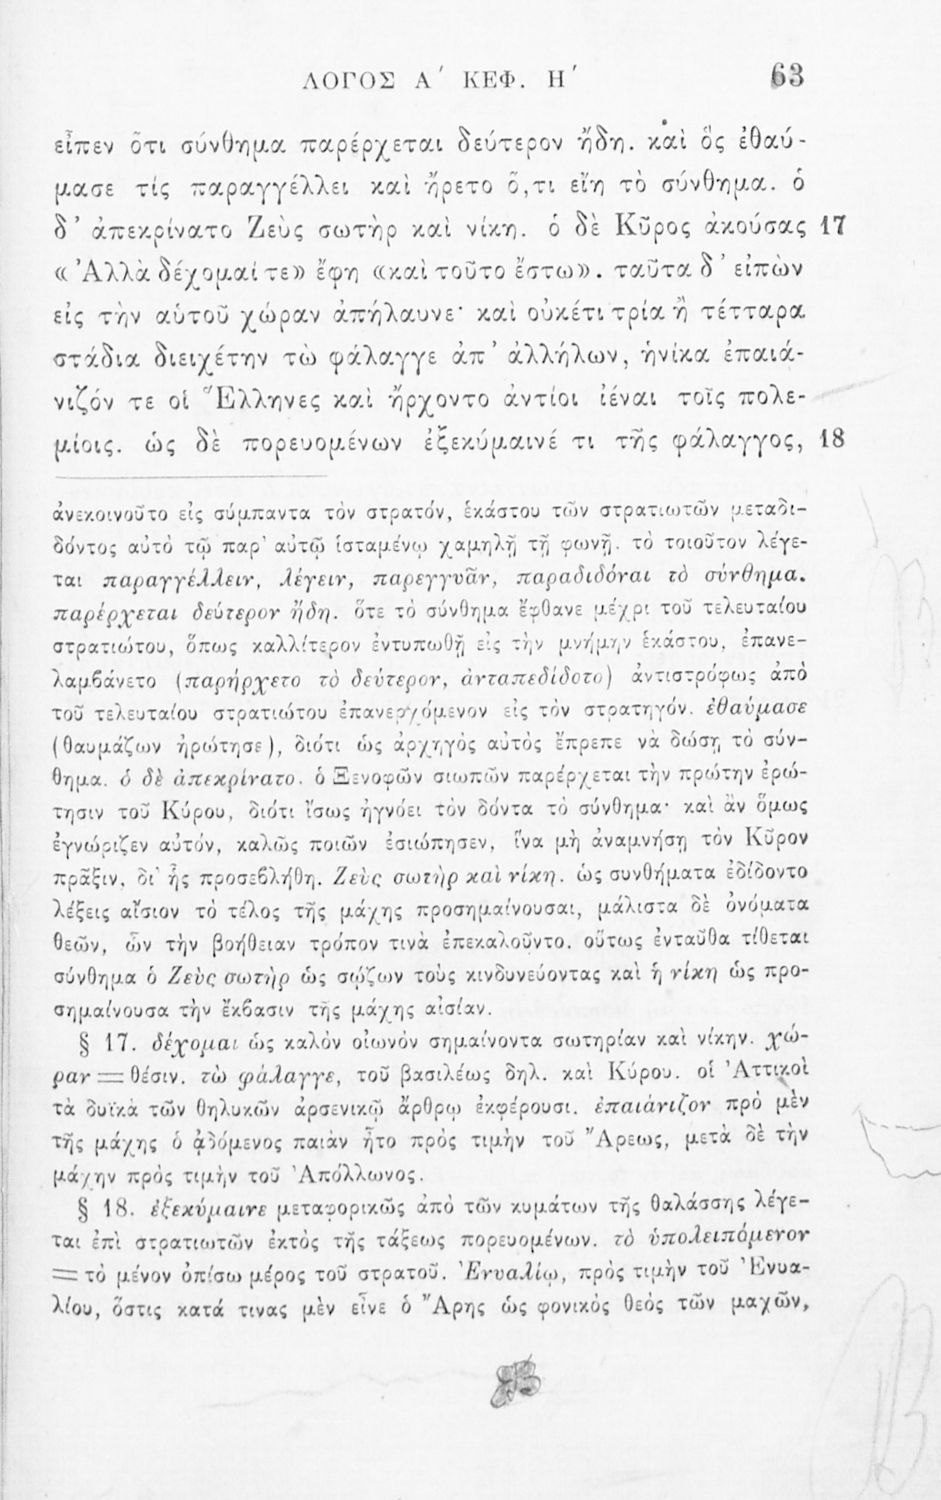 ΛΟΓΟΣ Α΄ ΚΕΦ. Η΄ 63
εἶπεν ὅτι σύνθημα παρέρχεται δεύτερον ἤδη. καὶ ὃς ἐθαύ-
μασε τίς παραγγέλλει καὶ ἤρετο ὅ,τι εἴη τὸ σύνθημα. ὁ
δ᾿ ἀπεκρίνατο Ζεὺς σωτὴρ καὶ νίκη. ὁ δὲ Κῦρος ἀκούσας 17
«Ἀλλὰ δέχομαί τε» ἔφη «καὶ τοῦτο ἔστω». ταῦτα δ᾿ εἰπὼν
εἰς τὴν αὑτοῦ χώραν ἀπήλαυνε· καὶ οὐκέτι τρία ἢ τέτταρα
στάδια διειχέτην τὼ φάλαγγε ἀπ᾿ ἀλλήλων, ἡνίκα ἐπαιά-
νιζόν τε οἱ Ἕλληνες καὶ ἤρχοντο ἀντίοι ἰέναι τοῖς πολε-
μίοις. ὡς δὲ πορευομένων ἐξεκύμαινέ τι τῆς φάλαγγος, 18
ἀνεκοινοῦτο εἰς σύμπαντα τὸν στρατόν, ἑκάστου τῶν στρατιωτῶν μεταδι-
δόντος αὐτὸ τῷ παρ᾿ αὐτῷ ἱσταμένῳ χαμηλῇ τῇ φωνῇ. τὸ τοιοῦτον λέγε-
ται παραγγέλλειν, λέγειν, παρεγγυᾶν, παραδιδόναι τὸ σύνθημα.
παρέρχεται δεύτερον ἤδη. ὅτε τὸ σύνθημα ἔφθανε μέχρι τοῦ τελευταίου
στρατιώτου, ὅπως καλλίτερον ἐντυπωθῇ εἰς τὴν μνήμην ἑκάστου, ἐπανε-
λαμβάνετο (παρήρχετο τὸ δεύτερον, ἀνταπεδίδοτο) ἀντιστρόφως ἀπὸ
τοῦ τελευταίου στρατιώτου ἐπανερχόμενον εἰς τὸν στρατηγόν. ἐθαύμασε
(θαυμάζων ἠρώτησε), διότι ὡς ἀρχηγὸς αὐτὸς ἔπρεπε νὰ δώσῃ τὸ σύν-
θημα. ὁ δὲ ἀπεκρίνατο. ὁ Ξενοφῶν σιωπῶν παρέρχεται τὴν πρώτην ἐρώ-
τησιν τοῦ Κύρου, διότι ἴσως ἠγνόει τὸν δόντα τὸ σύνθημα· καὶ ἂν ὅμως
ἐγνώριζεν αὐτόν, καλῶς ποιῶν ἐσιώπησεν, ἵνα μὴ ἀναμνήσῃ τὸν Κῦρον
πρᾶξιν, δι᾿ ἧς προσεβλήθη. Ζεὺς σωτὴρ καὶ νίκη. ὡς συνθήματα ἐδίδοντο
λέξεις αἴσιον τὸ τέλος τῆς μάχης προσημαίνουσαι, μάλιστα δὲ ὀνόματα
θεῶν, ὧν τὴν βοήθειαν τρόπον τινὰ ἐπεκαλοῦντο. οὕτως ἐνταῦθα τίθεται
σύνθημα ὁ Ζεὺς σωτὴρ ὡς σῴζων τοὺς κινδυνεύοντας καὶ ἡ νίκη ὡς προ-
σημαίνουσα τὴν ἔκβασιν τῆς μάχης αἰσίαν.
§ 17. δέχομαι ὡς καλὸν οἰωνὸν σημαίνοντα σωτηρίαν καὶ νίκην. χώ-
ραν = θέσιν. τὼ φάλαγγε, τοῦ βασιλέως δηλ. καὶ Κύρου. οἱ Ἀττικοὶ
τὰ δυϊκὰ τῶν θηλυκῶν ἀρσενικῷ ἄρθρῳ ἐκφέρουσι. ἐπαιάνιζον πρὸ μὲν
τῆς μάχης ὁ ᾀδόμενος παιὰν ἦτο πρὸς τιμὴν τοῦ Ἄρεως, μετὰ δὲ τὴν
μάχην πρὸς τιμὴν τοῦ Ἀπόλλωνος.
§ 18. ἐξεκύμαινε μεταφορικῶς ἀπὸ τῶν κυμάτων τῆς θαλάσσης λέγε-
ται ἐπὶ στρατιωτῶν ἐκτὸς τῆς τάξεως πορευομένων. τὸ ὑπολειπόμενον
= τὸ μένον ὀπίσω μέρος τοῦ στρατοῦ. Ἐνυαλίῳ, πρὸς τιμὴν τοῦ Ἐνυα-
λίου, ὅστις κατά τινας μὲν εἶνε ὁ Ἄρης ὡς φονικὸς θεὸς τῶν μαχῶν,